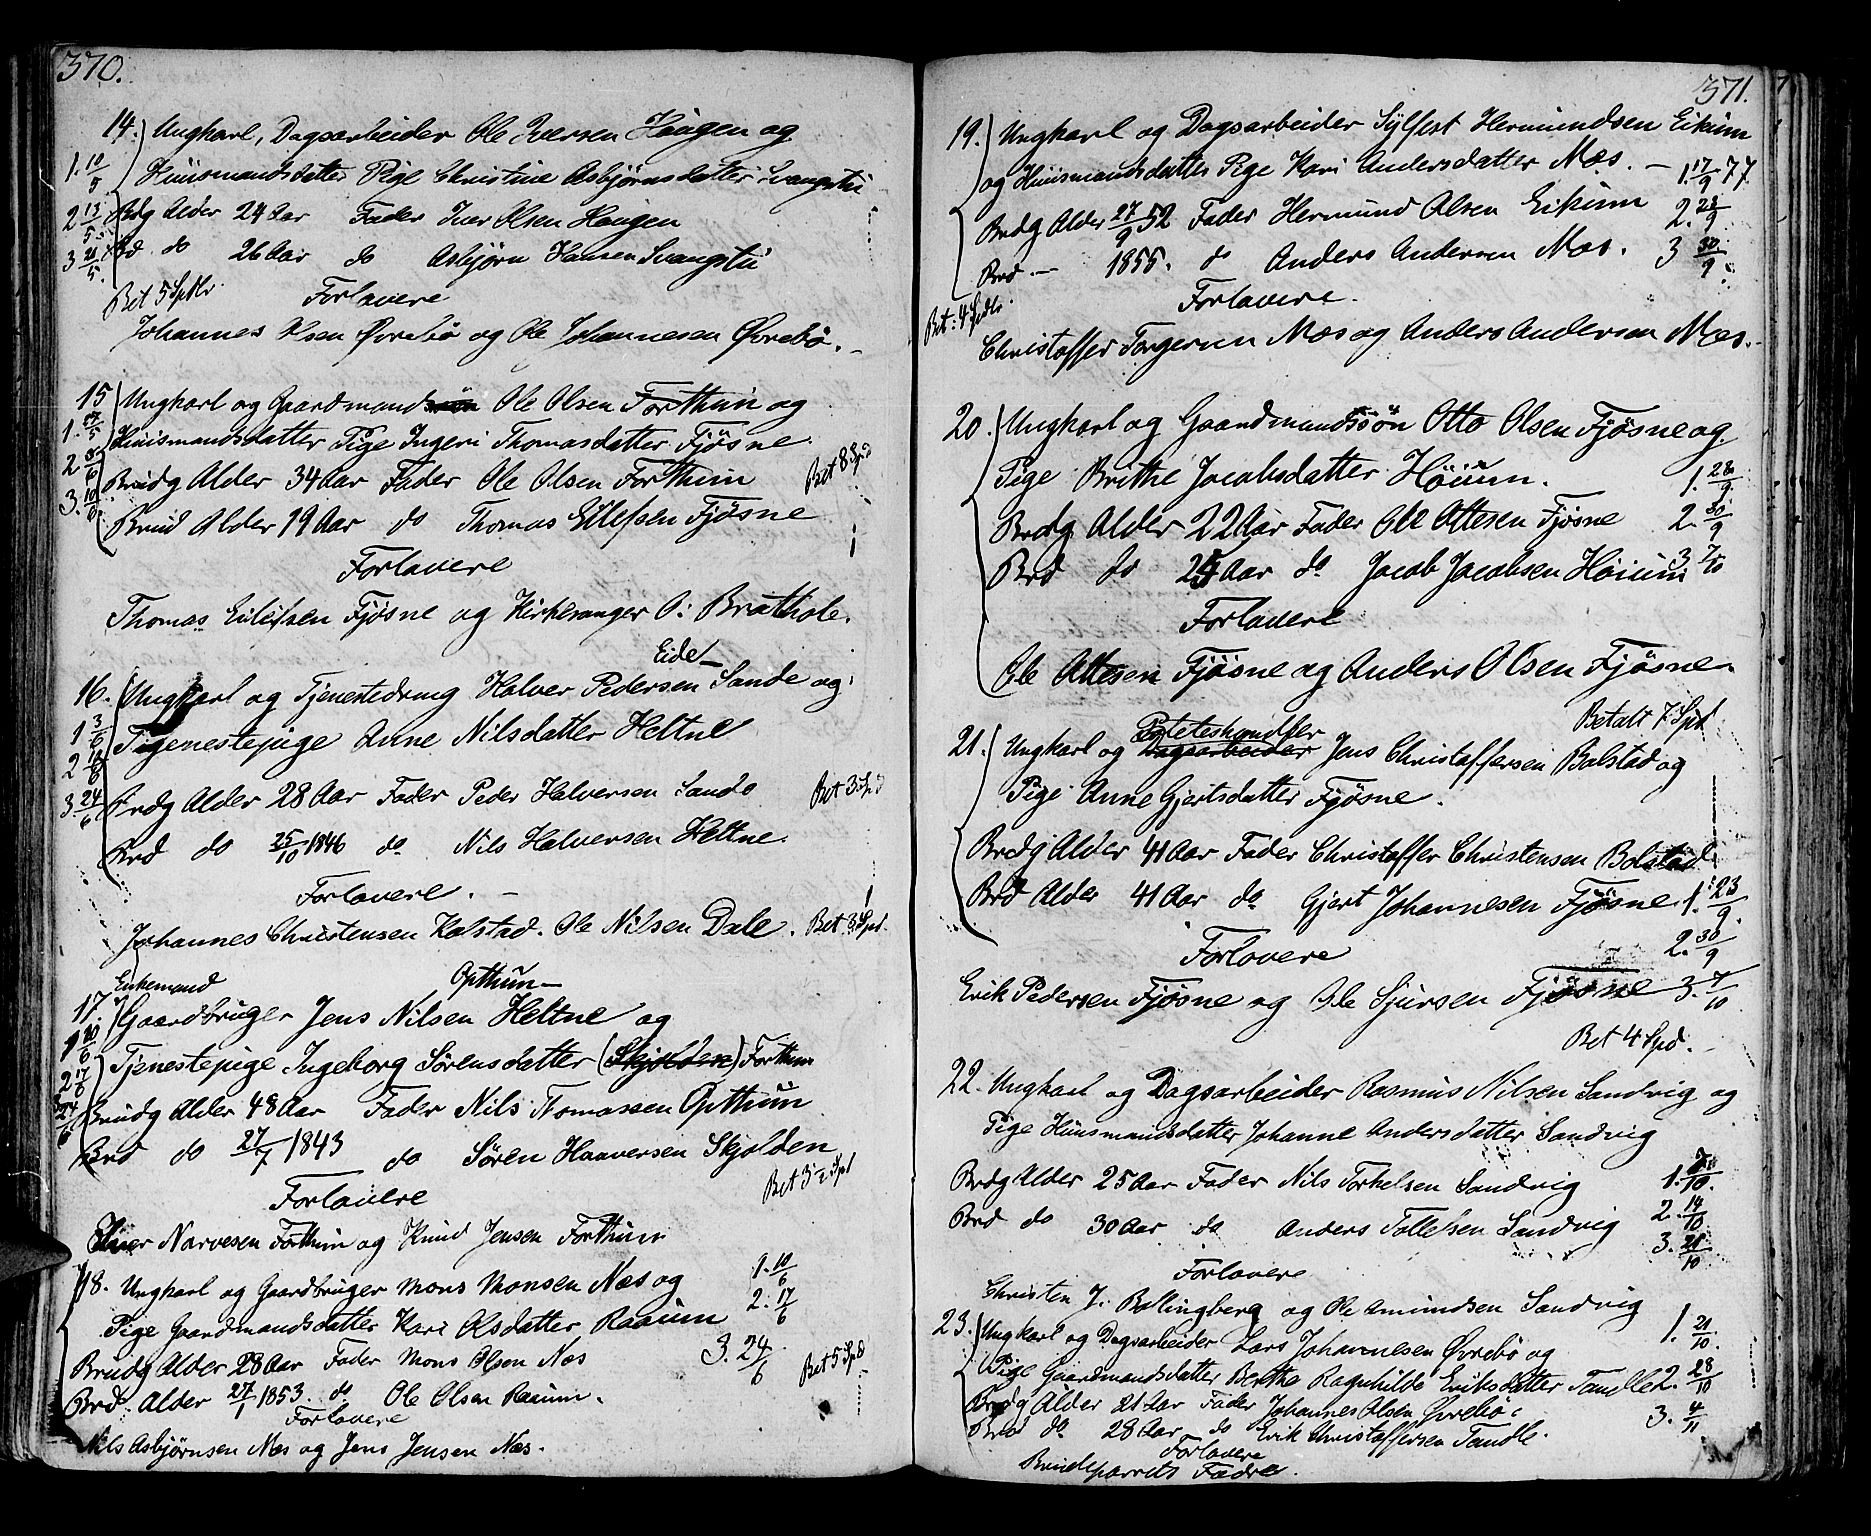 370.
14.) Ungkarl, Dagsarbeider Ole Iversen Haugen og
1. 10/5 Huusmandsdatter Pige Christine Asbjørnsdatter Svangstu
2 13/5 Brdg Alder 24 Aar Fader Iver Olsen Haugen
3 21/5. Brd do 26 Aar do Asbjørn Hansen Svangstu
Bet 5 Spdlr. Forlovere
Johannes Olsen Øvrebø og Ole Johannesen Øvrebø. -
15 Ungkarl og Gaardmandssøn Ole Olsen Forthun og
1. 27/5 Huusmandsdatter Pige Ingeri Thomasdatter Fjøsne.
2 3/6 Brudg Alder 34 Aar Fader Ole Olsen Forthun Bet 8 Spd
3. 10/6 Brud Alder 19 Aar do Thomas Eilefsen Fjøsne
Forlovere
Thomas Eilefsen Fjøsne og Kirkesanger O: Brathole.
Eide -
16. Ungkarl og Tjenestedreng Halver Pedersen Sande og
1 3/6 Tjenestepige Anne Nilsdatter Heltne
2
3. 24/6 Brdg Alder 28 Aar Fader Peder Halversen Sande Bet 3 Spd
Brd do 25/10 1846 do Nils Halversen Heltne.
Forlovere. -
Johannes Christensen Kalstad. Ole Nilsen Dale. Bet 3 Spd.
Enkemand Opthun -
17. Gaardbruger Jens Nilsen Heltne og
1 10/6 Tjenestepige Ingeborg Sörensdatter (Skjolden) Forthun
2 17/6
24/6 Brudg Alder 48 Aar Fader Nils Thomassen Opthun
Brd do 27/7 1843 do Sören Haaversen Skjolden
Forlovere Bet 3 Spd
Narvesen Forthun og Knud Jensen Forthun
18. Ungkarl og Gaardbruger Mons Monsen Næs og 1. 10/6
Pige Gaardmandsdatter Kari Olsdatter Raaum 2. 17/6
Brudg Alder 28 Aar Fader Mons Olsen Næs 3. 24/6
Brd. Alder 27/1 1853 do Ole Olsen Raaum. Bet 5 Spd
Forlovere
Nils Asbjørnsen Næs og Jens Jensen Næs.
371.
19.) Ungkarl og Dagsarbeider Sylfest Hermundsen Eikum
og Huusmandsdatter Pige Kari Andersdatter Mæs. - 1. 17/9 77
Brdg Alder 27/9 52 Fader Hermund Olsen Eikum 2. 23/9
Brd - 1855. do Anders Andersen Mæs. 3 30/9.
Bet: 4 Spdlr. Forlovere.
Christoffer Torgersen Mæs og Anders Andersen Mæs. -
20.) Ungkarl og Gaardmandssön Otto Olsen Fjøsne og
Pige Brithe Jacobsdatter Höium. 1. 23/9.
Brdg Alder 22 Aar Fader Ole Ottesen Fjøsne 2. 30/9
Brd do 25 Aar do Jacob Jacobsen Höium 3 7/10
Forlovere
Ole Ottesen Fjøsne og Anders Olsen Fjøsne.
Betalt 7 Spd
21.) Ungkarl og Dagsarbeider Jens Christoffersen Bolstad og
Pige Anne Gjertsdatter Fjøsne.
Brdg Alder 41 Aar Fader Christoffer Christensen Bolstad
Brd Alder 41 Aar do Gjert Johannesen Fjøsne 1. 23/9.
Forlovere 2. 30/9
Erik Pedersen Fjøsne og Ole Sjursen Fjøsne 3. 7/10
Bet 4 Spd.
22. Ungkarl og Dagsarbeider Rasmus Nilsen Sandvig og
Pige Huusmandsdatter Johanne Andersdatter Sandvig
Brdg Alder 25 Aar Fader Nils Torkelsen Sandvig 1. 7/10.
Brd do 30 Aar do Anders Tollefsen Sandvig 2. 14/10
3. 21/10
Forlovere
Christen J. Bollingberg og Ole Amundsen Sandvig
23.) Ungkarl og Dagsarbeider Lars Johannesen Øvrebø og 1. 21/10.
Pige Gaardmandsdatter Berthe Ragnhilde Eriksdatter Tandle 2. 28/10
Brdg Alder 21 Aar Fader Johannes Olsen Øvrebø. 3. 4/11
Brd do 28 Aar do Erik Christoffersen Tandle.
Forlovere
Brudeparrets Fædre.